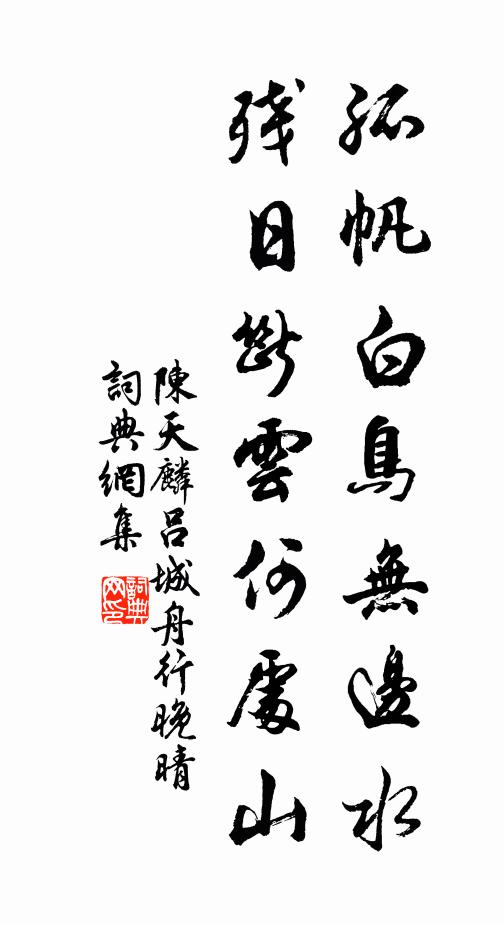 孤帆白鳥無邊水
残日斷雲何處山
陳天麟呂城舟行晚晴
詞典網集
詞典網印